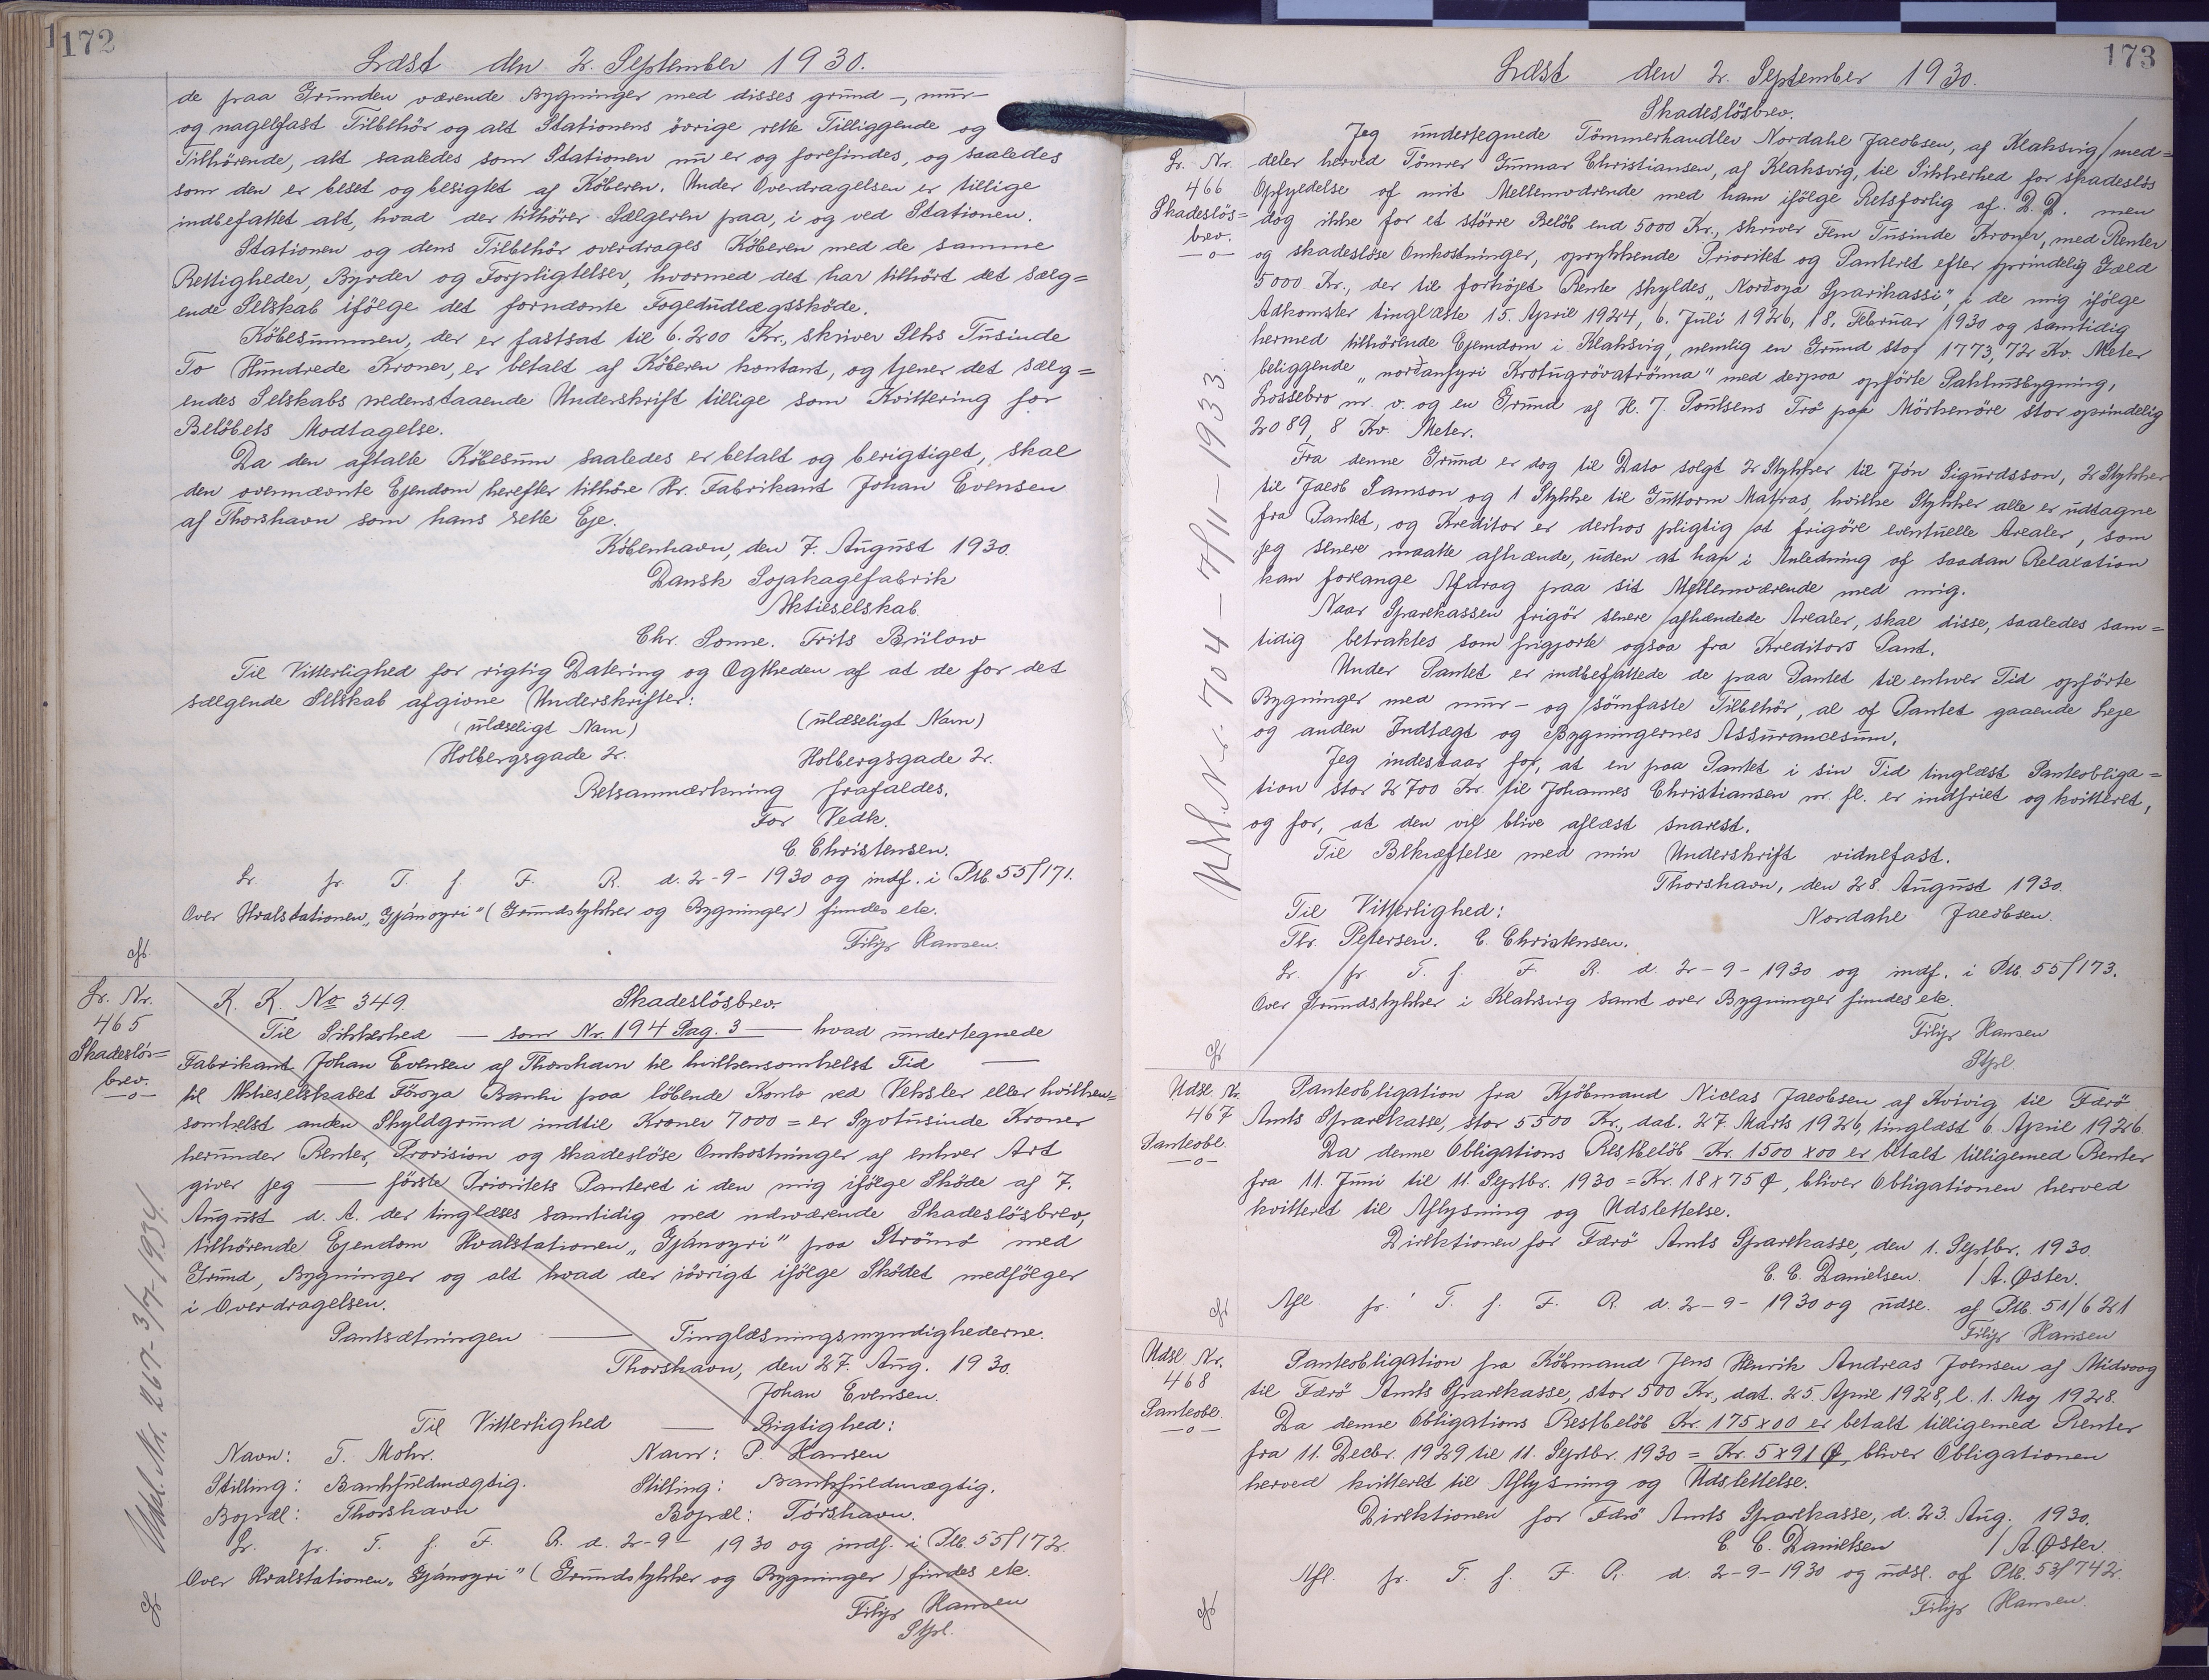 172
Læst den 2. September 1930.
de paa Grunden værende Bygninger med disses grund-, mur-
og nagelfast Tilbehör og alt Stationens övrige rette Tilliggende og
Tilhörende, alt saaledes som Stationen nu er og forefindes, og saaledes
som den er beset og besigtet af Köberen. Under Overdragelsen er tillige
indbefattet alt, hvad der tilhörer Sælgeren paa, i og ved Stationen.
Stationen og dens Tilbehör overdrages Köberen med de samme
Rettigheder, Byrder og Forpligtelser, hvormed det har tilhört det sælg=
ende Selskab ifölge det fornævnte Fogedudlægssköde.
Köbesummen, der er fastsat til 6.200 Kr., skriver Seks Tusinde
To Hundrede Kroner, er betalt af Köberen kontant, og tjener det sælg=
endes Selskabs nedenstaaende Underskrift tillige som Kvittering for
Belöbets Modtagelse.
Da den aftalte Köbesum saaledes er betalt og berigtiget, skal
den ovennævnte Ejendom herefter tilhöre Hr. Fabrikant Johan Evensen
af Thorshavn som hans rette Eje.
Köbenhavn, den 7. August 1930.
Dansk Sojakagefabrik
Aktieselskab.
Chr. Sonne. Frits Bülow
Til Vitterlighed for rigtig Datering og Ægtheden af at de for det
sælgende Selskab afgivne Underskrifter:
(ulæseligt Navn) (ulæseligt Navn)
Holbergsgade 2. Holbergsgade 2.
Retsanmærkning frafaldes.
For Vedk.
C. Christensen.
Lr. fr. T. f. F. R. d. 2-9-1930 og indf. i Ptb. 55/171.
Over Hvalstationen "Gjánoyri" (Grundstykker og Bygninger) findes etc.
Filip Hansen.
Lr. Nr.
465
Skadeslös=
brev.
—o—
K. K. No 349. Skadeslösbrev.
Til Sikkerhed — som Nr. 194 Pag. 3 — hvad undertegnede
Fabrikant Johan Evensen af Thorshavn til hvilkensomhelst Tid —
til Aktieselskabet Föroya Banki paa löbende Konto ved Veksler eller hvilken=
somhelst anden Skyldgrund indtil Kroner 7000 = er Syvtusinde Kroner
herunder Renter, Provision og skadeslöse Omkostninger af enhver Art
giver jeg — förste Prioritets Panteret i den mig ifölge Sköde af 7.
August d. A. der tinglæses samtidig med nærværende Skadeslösbrev,
tilhörende Ejendom Hvalstationen "Gjánoyri" paa Strömö med
Grund, Bygninger og alt hvad der iövrigt ifölge Sködet medfölger
i Overdragelsen.
Pantsætningen — Tinglæsningsmyndighederne.
Thorshavn, den 27. Aug. 1930.
Johan Evensen.
Til Vitterlighed — Rigtighed:
Navn: T. Mohr. Navn: P. Hansen
Stilling: Bankfuldmægtig. Stilling: Bankfuldmægtig.
Bopæl: Thorshavn Bopæl: Tórshavn.
Lr. fr. T. f. F. R. d. 2-9-1930 og indf. i Ptb. 55/172.
Over Hvalstationen "Gjánoyri" (Grundstykker og Bygninger) findes etc.
Filip Hansen
Stpl.
Udsl. Nr. 267-3/7-1934.
173
Læst den 2. September 1930.
Skadeslösbrev.
Lr. Nr.
466
Skadeslös=
brev.
—o—
Jeg undertegnede Tömmerhandler Nordahl Jacobsen, af Klaksvig, med=
deler herved Tömrer Gunnar Christiansen, af Klaksvig, til Sikkerhed for skadeslös
Opfyldelse af mit Mellemværende med ham ifölge Retsforlig af D. D. men
dog ikke for et större Belöb end 5000 Kr., skriver Fem Tusinde Kroner, med Renter
og skadeslöse Omkostninger, oprykkende Prioritet og Panteret efter oprindelig Gæld
5000 Kr., der til forhöjet Rente skyldes "Nordoya Sparikassi", i de mig ifölge
Adkomster tinglæste 15. April 1924, 6. Juli 1926, 18. Februar 1930 og samtidig
hermed tilhörende Ejendom i Klaksvig, nemlig en Grund stor 1773,72 Kv. Meter
beliggende "nordanfyri Krotugróvatrönna" med derpaa opförte Pakhusbygning,
Lossebro m. v. og en Grund af H. J. Poulsens Trö paa Mörkenöre stor oprindelig
2089,8 Kv. Meter.
Fra denne Grund er dog til Dato solgt 2 Stykker til Jón Sigurdsson, 2 Stykker
til Jacob Samson og 1 Stykke til Guttorm Matras, hvilke Stykker alle er udtagne
fra Pantet, og Kreditor er derhos pligtig at frigöre eventuelle Arealer, som
jeg senere maatte afhænde, uden at han i Anledning af saadan Relaxation
kan forlange Afdrag paa sit Mellemværende med mig.
Naar Sparekassen frigör senere afhændede Arealer, skal disse, saaledes sam=
tidig betraktes som frigjorte ogsaa fra Kreditors Pant.
Under Pantet er indbefattede de paa Pantet til enhver Tid opförte
Bygninger med mur- og sömfaste Tilbehör, al af Pantet gaaende Leje
og anden Indtægt og Bygningernes Assurancesum.
Jeg indestaar for, at en paa Pantet i sin Tid tinglæst Panteobliga=
tion stor 2700 Kr. til Johannes Christiansen m. fl. er indfriet og kvitteret,
og for, at den vil blive aflæst snarest.
Til Bekræftelse med min Underskrift vidnefast.
Thorshavn, den 28. August 1930.
Til Vitterlighed: Nordahl Jacobsen.
Th. Petersen. C. Christensen.
Lr. fr. T. f. F. R. d. 2-9-1930 og indf. i Ptb. 55/173.
Over Grundstykker i Klaksvig samt over Bygninger findes etc.
Filip Hansen
Stpl.
Udsl. Nr. 704 - 7/11-1933.
Udsl. Nr.
467
Panteobl.
—o—
Panteobligation fra Kjöbmand Niclas Jacobsen af Kvivig til Færö
Amts Sparekasse, stor 5500 Kr., dat. 27. Marts 1926, tinglæst 6. April 1926.
Da denne Obligations Restbelöb Kr. 1500x00 er betalt tilligemed Renter
fra 11. Juni til 11. Septbr. 1930 = Kr. 18x75 Ø, bliver Obligationen herved
kvitteret til Aflysning og Udslettelse.
Direktionen for Færö Amts Sparekasse, den 1. Septbr. 1930.
C. C. Danielsen. / A. Øster.
Afl. fr. T. f. F. R. d. 2-9-1930 og udsl. af Ptb. 51/621
Filip Hansen
Udsl. Nr.
468
Panteobl.
—o—
Panteobligation fra Köbmand Jens Henrik Andreas Joensen af Midvaag
til Færö Amts Sparekasse, stor 500 Kr., dat. 25. April 1928, l. 1. Maj 1928.
Da denne Obligations Restbelöb Kr. 175x00 er betalt tilligemed Renter
fra 11. Decbr. 1929 til 11. Septbr. 1930 = Kr. 5x91 Ø, bliver Obligationen
herved kvitteret til Aflysning og Udslettelse.
Direktionen for Færö Amts Sparekasse, d. 23. Aug. 1930.
C. C. Danielsen / A. Øster.
Afl. fr. T. f. F. R. d. 2-9-1930 og udsl. af Ptb. 53/742.
Filip Hansen.